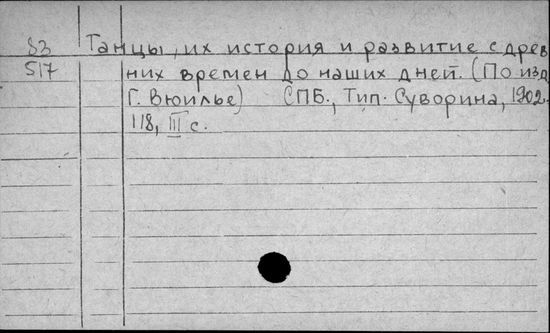 53 Танцы, их история и развитие с древ
517 них времен до наших дней. (По изд.
Г. Вюилье) СПБ., Тип. Суворина, 1902.
118, III с.